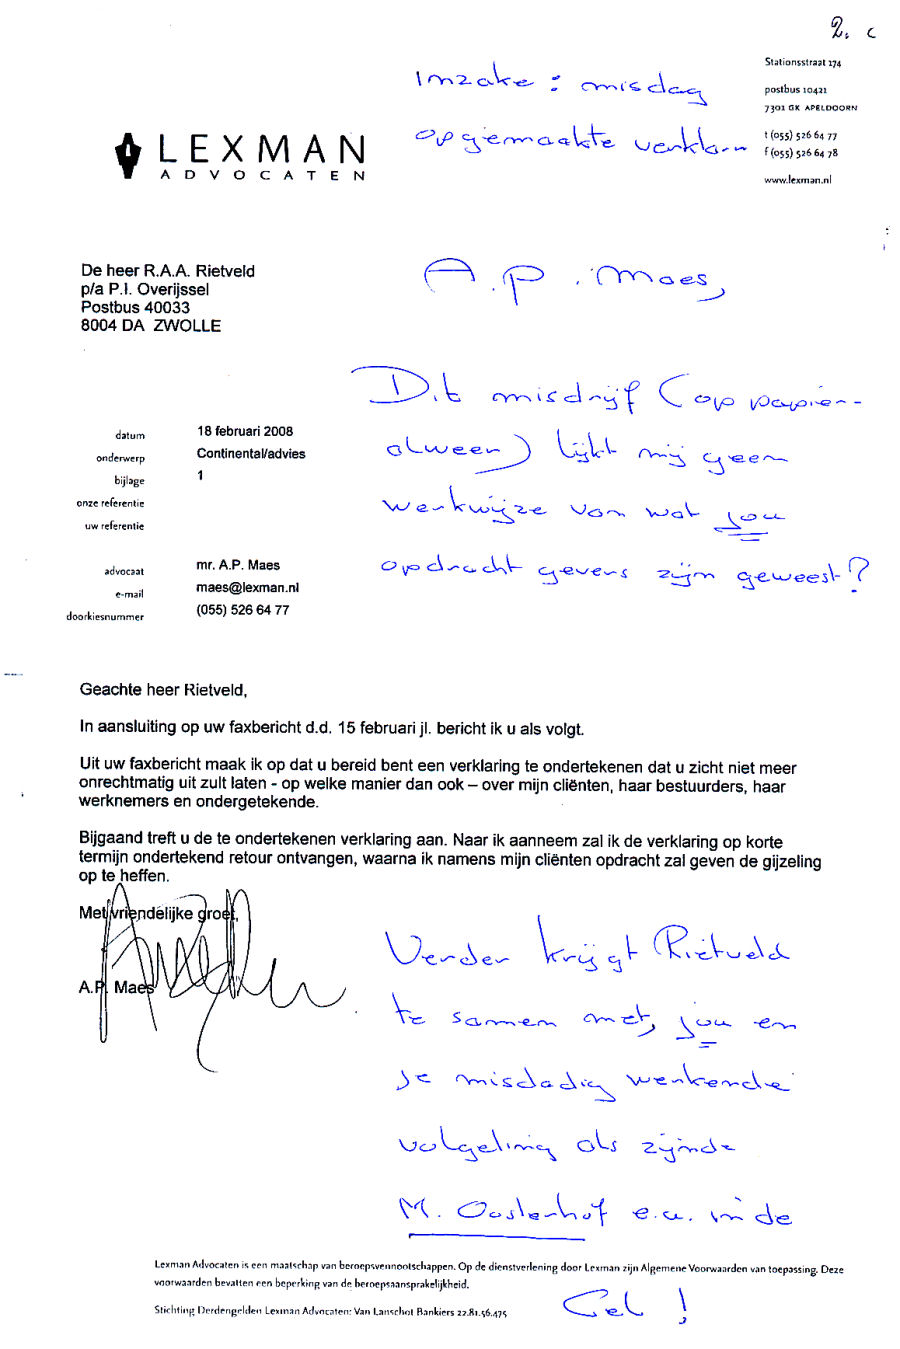 2. c
Inzake : misdag
opgemaakte verklarn
Stationsstraat 174
postbus 10421
7301 GK APELDOORN
t (055) 526 64 77
f (055) 526 64 78
www.lexman.nl
LEXMAN
ADVOCATEN
De heer R.A.A. Rietveld
p/a P.I. Overijssel
Postbus 40033
8004 DA ZWOLLE
A.P. Maes,
Dit misdrijf (op papier-
alweer) lijkt mij geen
werkwijze van wat jou
opdracht gevers zijn geweest?
datum 18 februari 2008
onderwerp Continental/advies
bijlage 1
onze referentie
uw referentie
advocaat mr. A.P. Maes
e-mail maes@lexman.nl
doorkiesnummer (055) 526 64 77
Geachte heer Rietveld,
In aansluiting op uw faxbericht d.d. 15 februari jl. bericht ik u als volgt.
Uit uw faxbericht maak ik op dat u bereid bent een verklaring te ondertekenen dat u zicht niet meer
onrechtmatig uit zult laten - op welke manier dan ook – over mijn cliënten, haar bestuurders, haar
werknemers en ondergetekende.
Bijgaand treft u de te ondertekenen verklaring aan. Naar ik aanneem zal ik de verklaring op korte
termijn ondertekend retour ontvangen, waarna ik namens mijn cliënten opdracht zal geven de gijzeling
op te heffen.
Met vriendelijke groet,
A.P. Maes
Verder krijgt Rietveld
te samen met, jou en
je misdadig werkende
volgeling als zijnde
M. Oosterhof e.a. in de
Cel !
Lexman Advocaten is een maatschap van beroepsvennootschappen. Op de dienstverlening door Lexman zijn Algemene Voorwaarden van toepassing. Deze
voorwaarden bevatten een beperking van de beroepsaansprakelijkheid.
Stichting Derdengelden Lexman Advocaten: Van Lanschot Bankiers 22.81.56.475